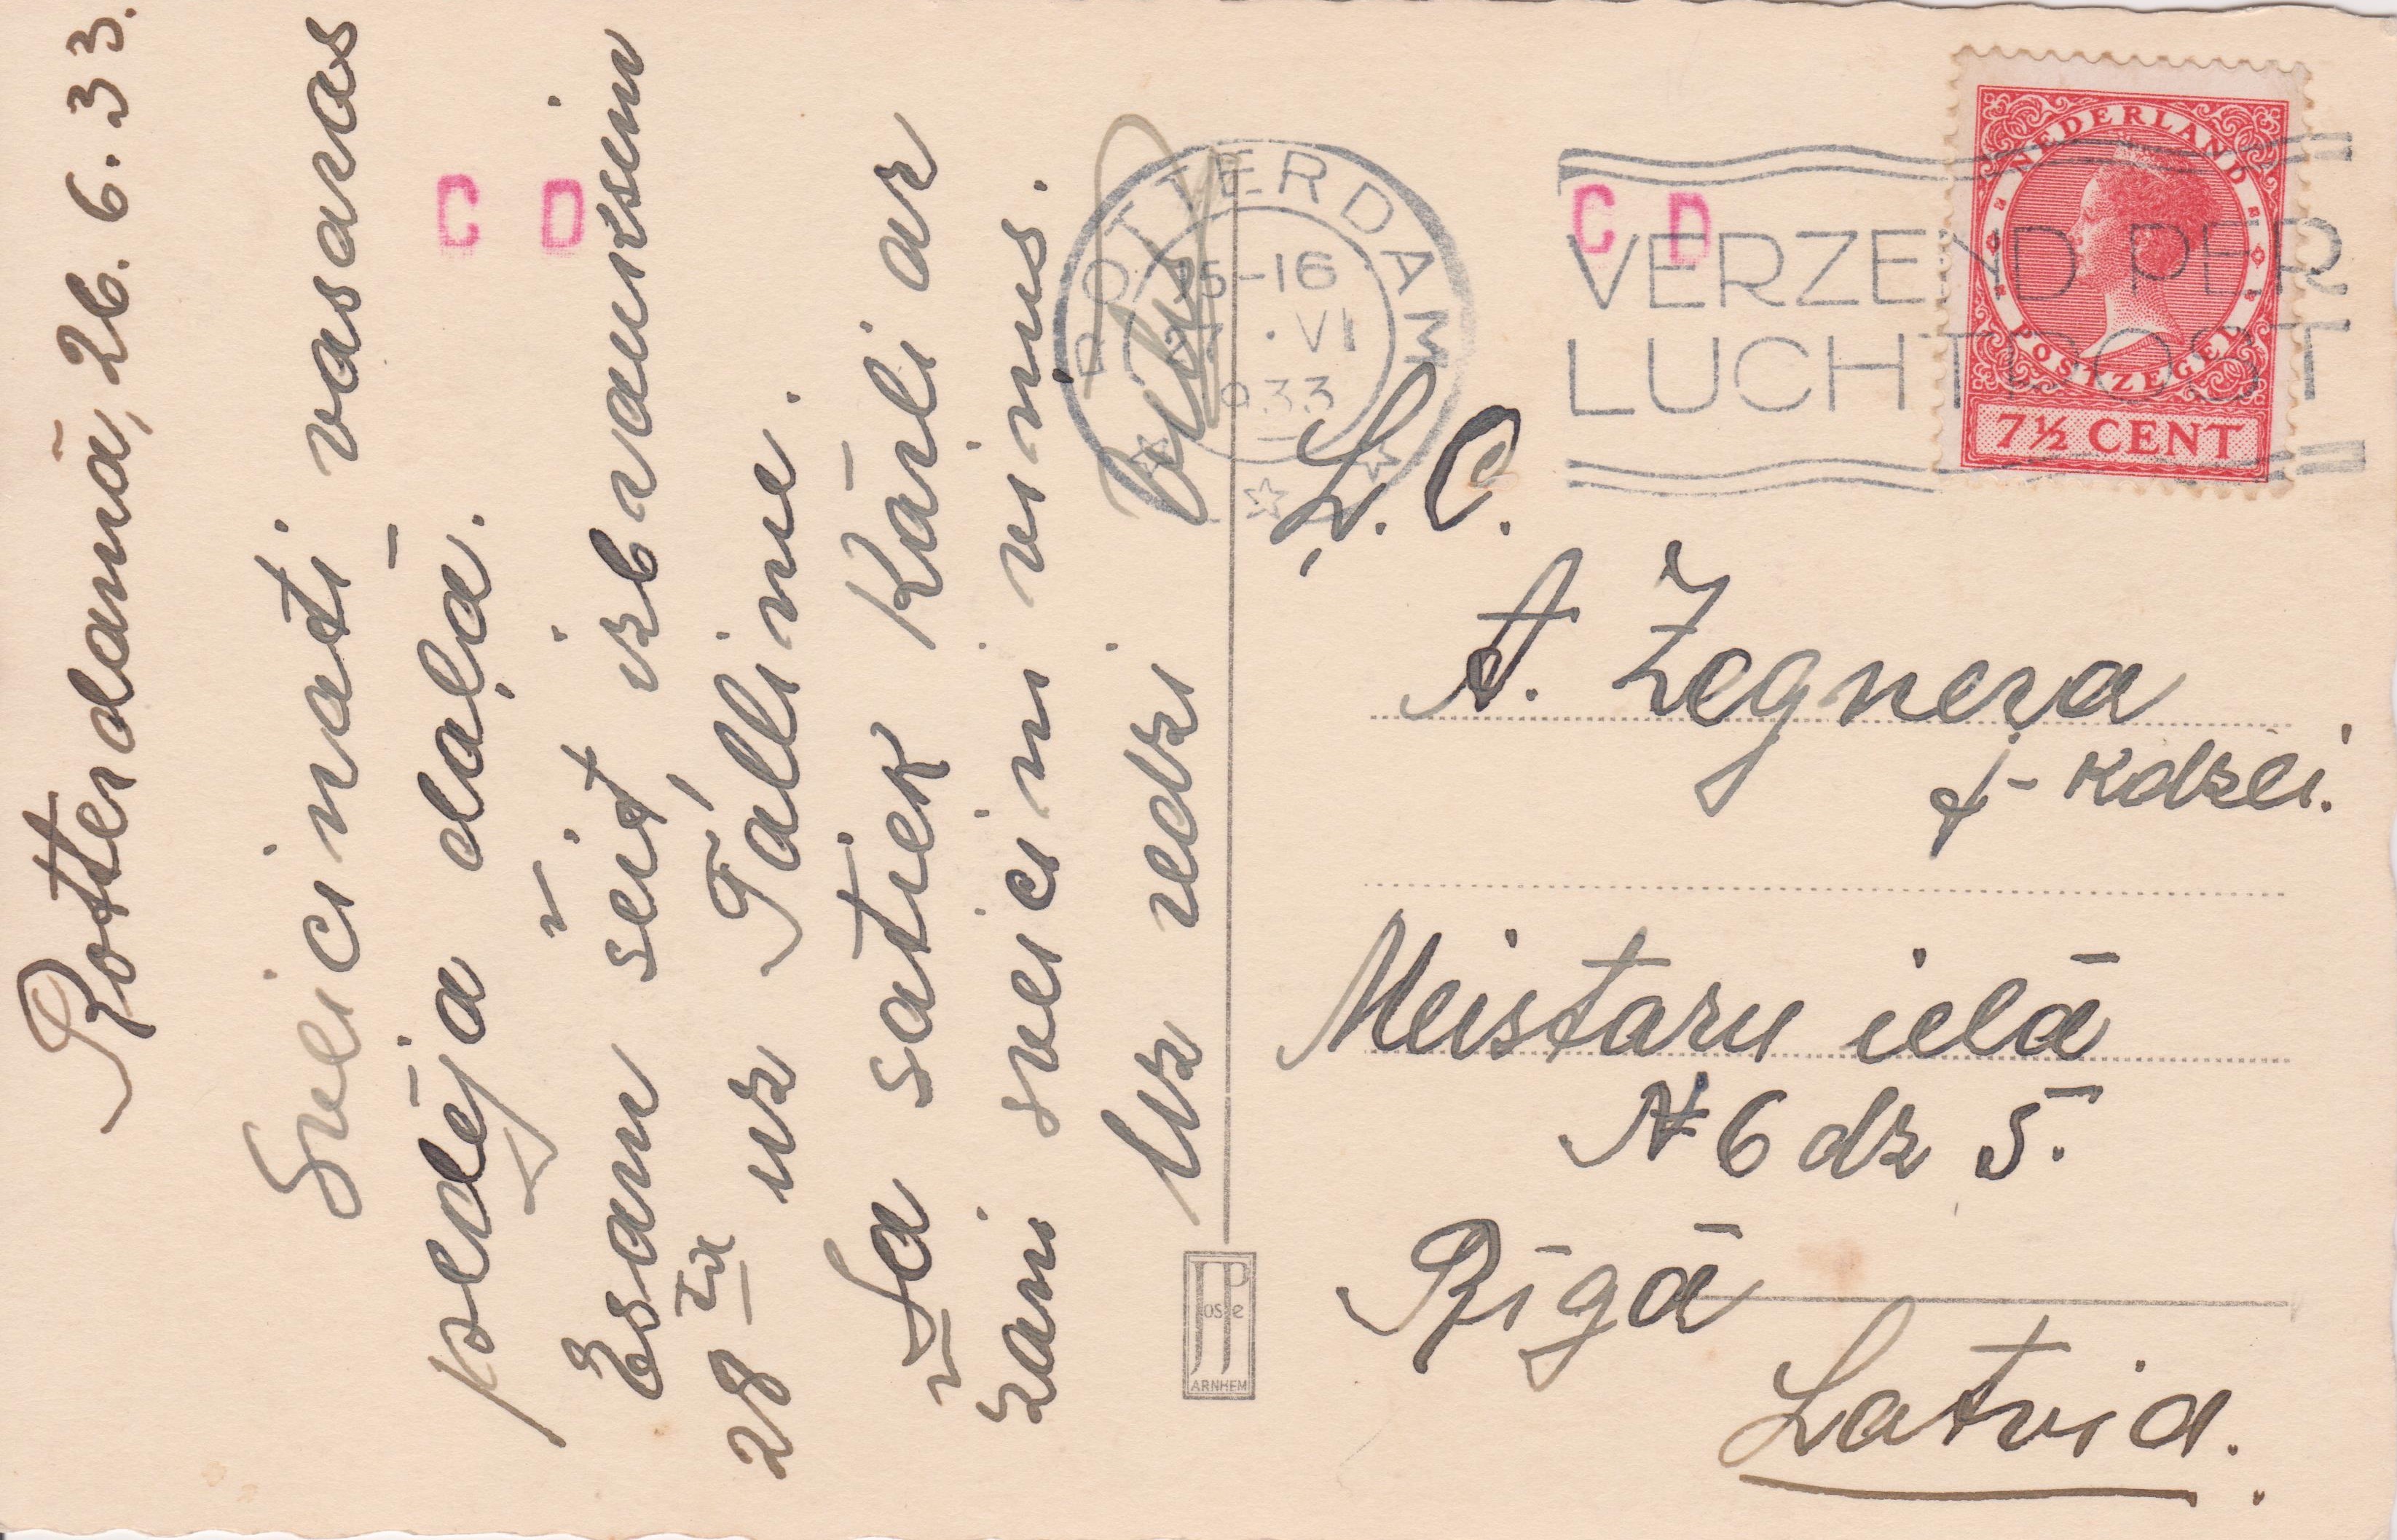 Rotterdamā, 26.6.33.
Sveicināti vasaras
pēdējā daļā.
Esam šeit izbrauksim
28 uz Tallinu.
Ja satiec Kārli ar
Žani sveicini viņus.
Uz redzi
C D
ROTTERDAM
15-16
27.VI
1933
C D
VERZEND PER
LUCHTPOST
NEDERLAND
POSTZEGEL
7½ CENT
L. C.
A. Zegnera
j-kdzei.
Meistaru ielā
N 6 dz 5.
Rīgā
Latvia.
JP
ARNHEM